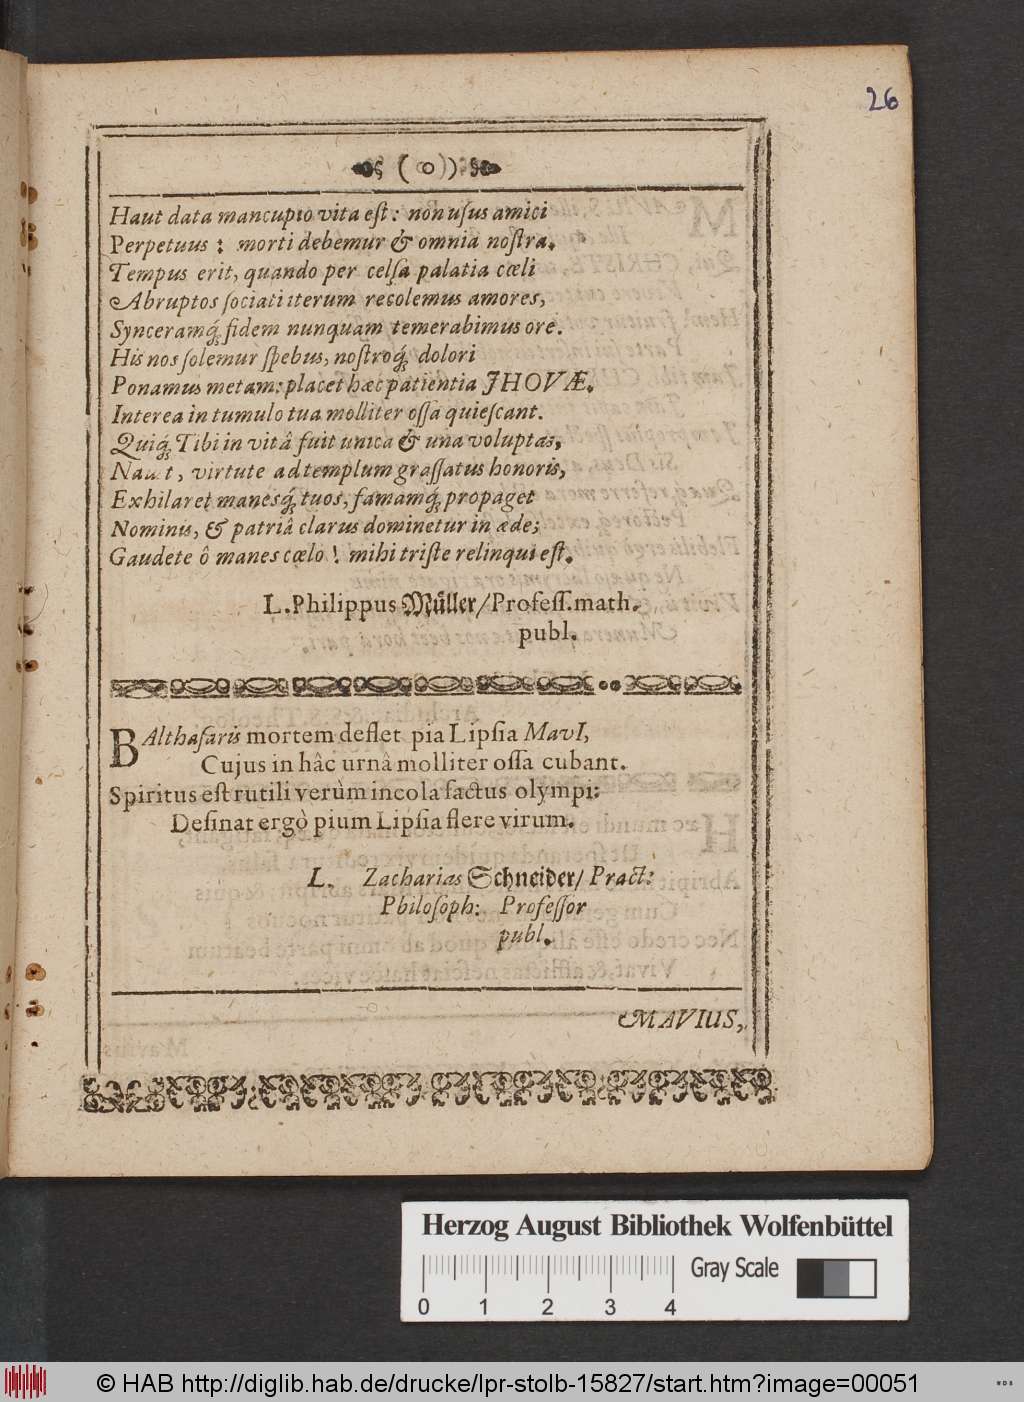 26
( o )
Haut data mancupio vita eſt: non uſus amici
Perpetuus: morti debemur & omnia noſtra.
Tempus erit, quando per celſa palatia cœli
Abruptos ſociati iterum recolemus amores,
Synceramq́; fidem nunquam temerabimus ore.
His nos ſolemur ſpebus, noſtroq́; dolori
Ponamus metam: placet hæc patientia JHOVÆ.
Interea in tumulo tua molliter oſſa quieſcant.
Quiq́; Tibi in vitâ fuit unica & una voluptas,
, virtute ad templum graſſatus honoris,
Exhilaret manesq́; tuos, famamq́; propaget
Nominis, & patriâ clarus dominetur in æde;
Gaudete ô manes cœlo! mihi triſte relinqui eſt.
L. Philippus Müller/ Profeſſ. math.
publ.
BAlthaſaris mortem deflet pia Lipſia MavI,
Cujus in hâc urnâ molliter oſſa cubant.
Spiritus eſt rutili verùm incola factus olympi:
Deſinat ergò pium Lipſia flere virum.
L. Zacharias Schneider/ Pract:
Philoſoph: Profeſſor
publ.
MAVIUS,
Herzog August Bibliothek Wolfenbüttel
Gray Scale
0 1 2 3 4
© HAB http://diglib.hab.de/drucke/lpr-stolb-15827/start.htm?image=00051